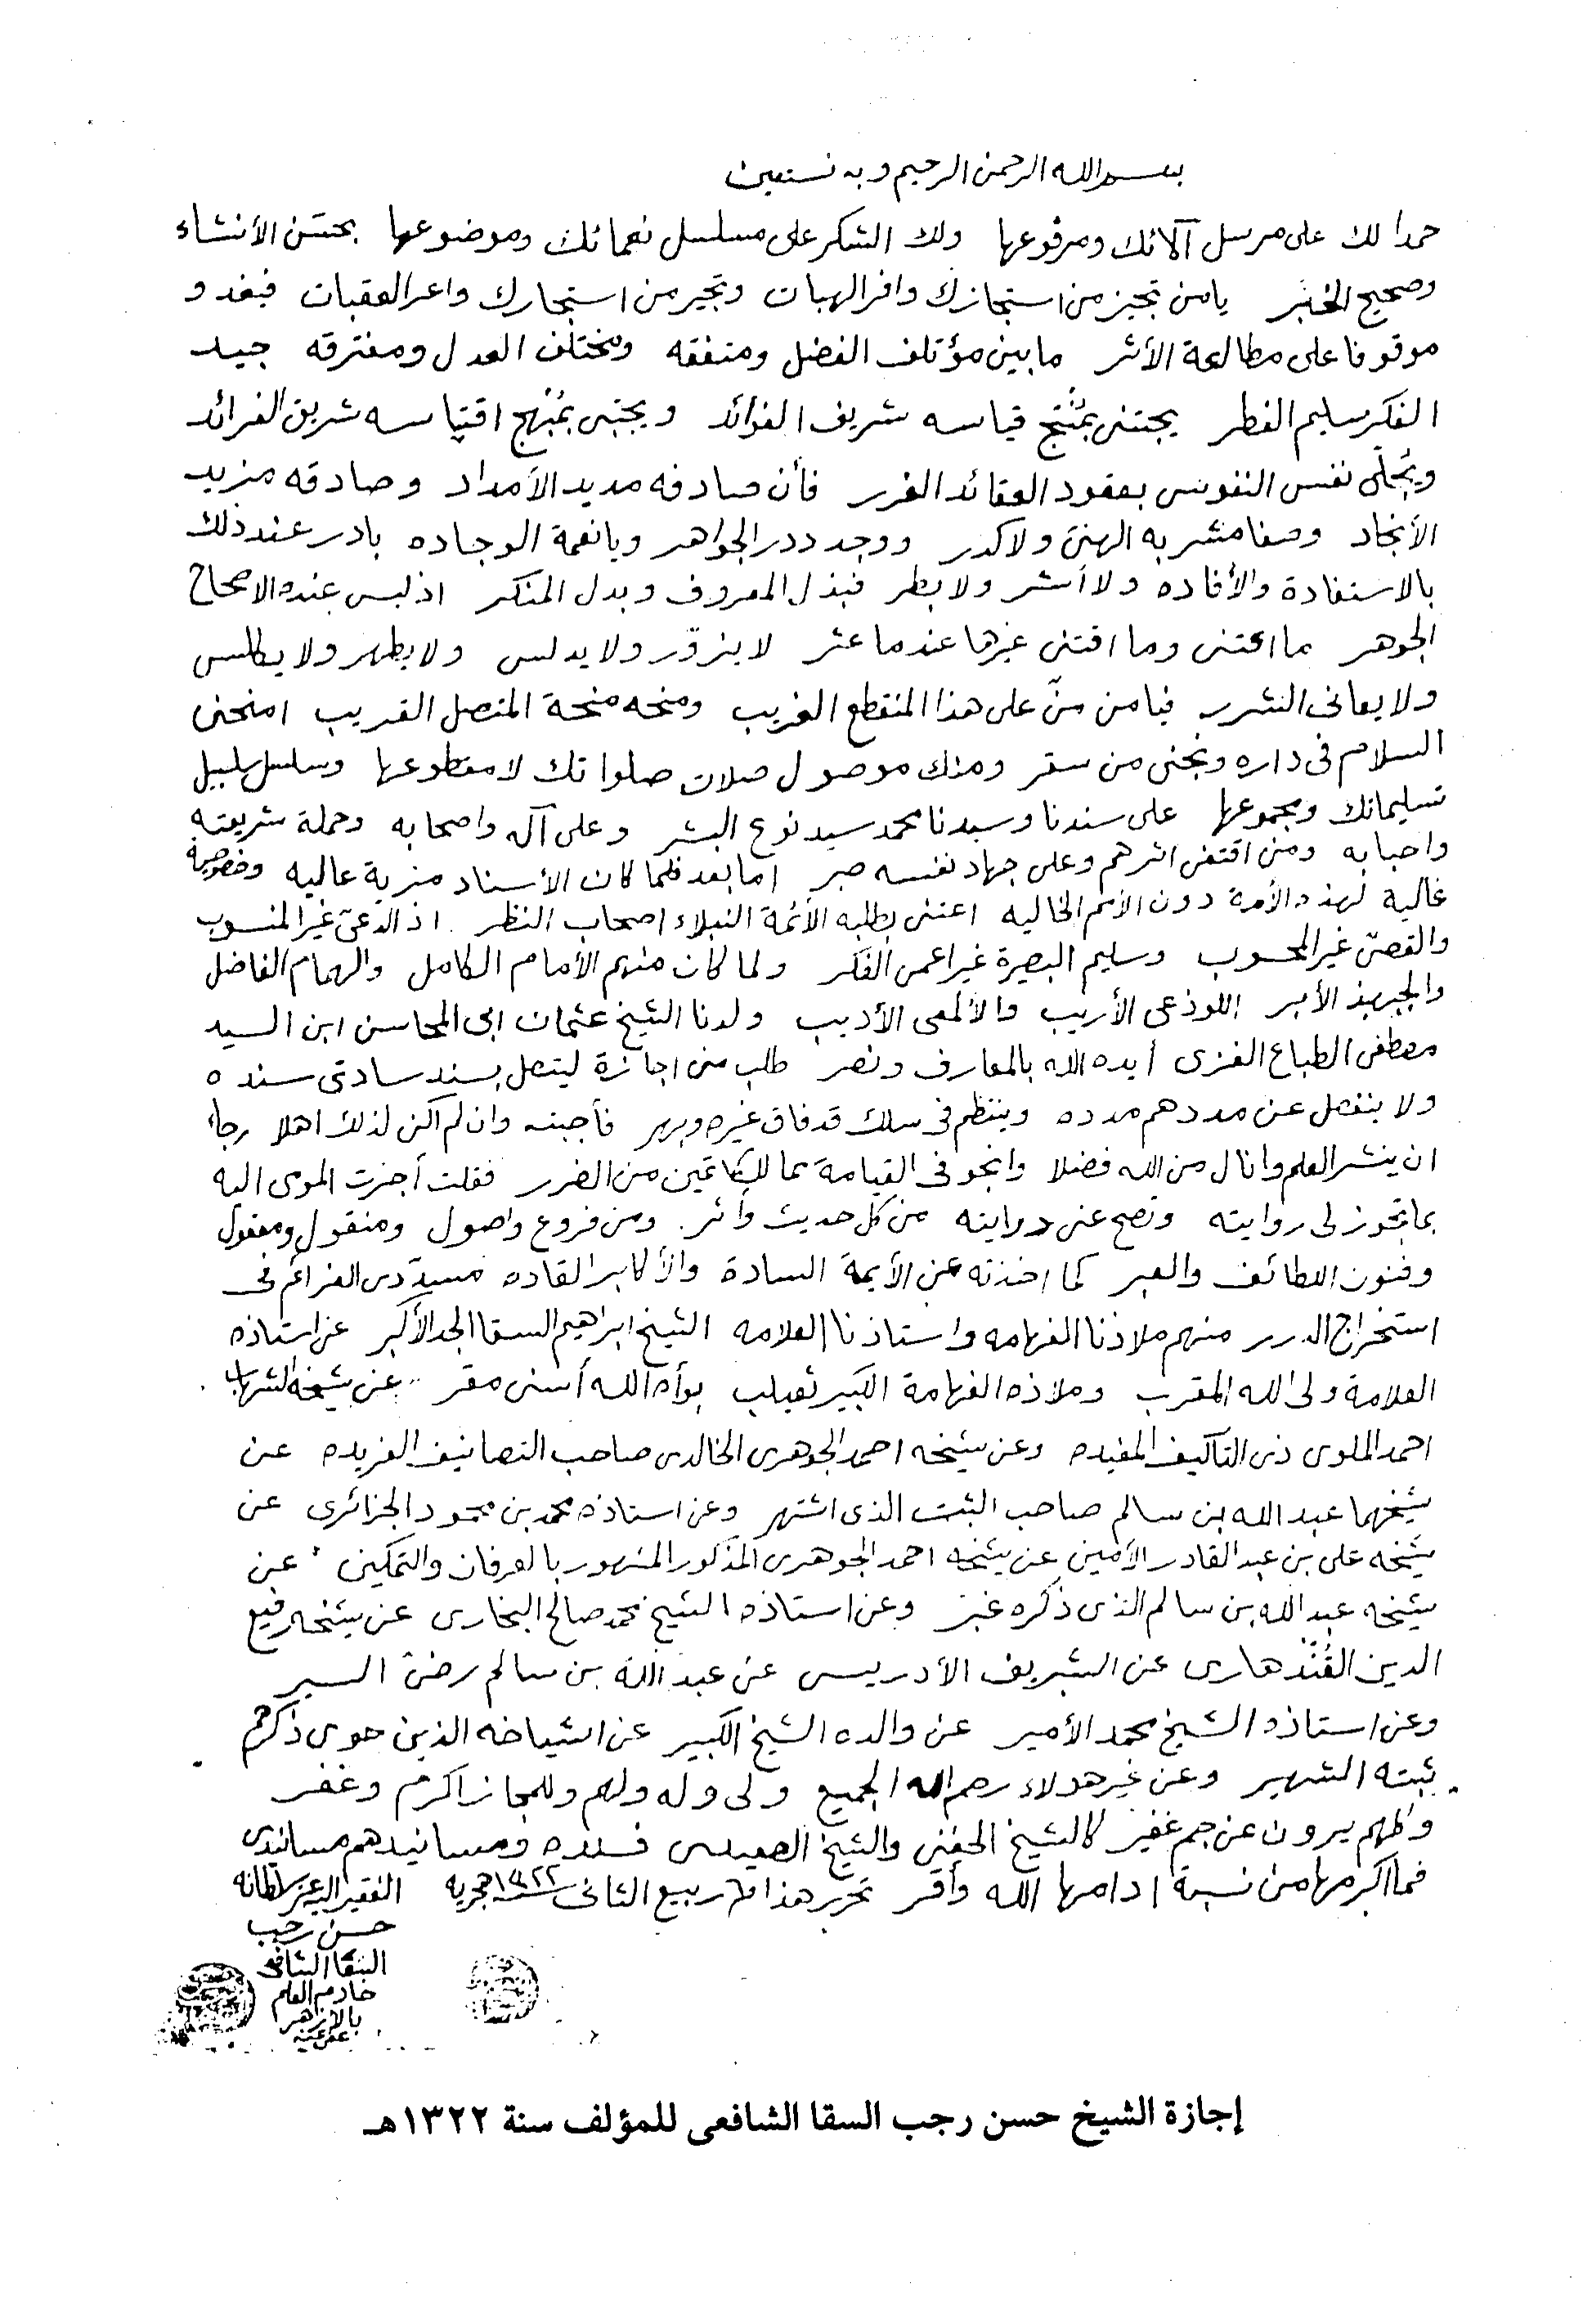 بسم الله الرحمن الرحيم وبه نستعين
حمدا لك على مرسل آلائك ومرفوعها ولك الشكر على مسلسل نعمائك وموضوعها بحسن الأنشاء
وصحيح الخبر يا من تجيز من استجازك وافر الهبات وتجير من استجارك واعر العقبات فيغدو
موقوفا على مطالعة الأثر ما بين مؤتلف الفضل ومتفقه ومختلف العدل ومفترقه جيد
الفكر سليم الفطر يجتنى بمنتج قياسه شريف الفوائد ويجتبى بمنهج اقتباسه شريف الفرائد
ويحلى نفس النفوس بعقود العقائد الغرر فأن صادفه مديد الأمداد وصادقه مزيد
الأنجاد وصفا مشربه الهنئ ولا كدر ووجد درر الجواهر ويا نعمة الوجاده بادر عند ذلك
بالاستفادة والأفاده ولا أشر ولا بطر فبذل المعروف وبدل المنكر اذ ليس عنده الا صحاح
الجوهر ما اقتنى وما اقتنى غيرها عندما عثر لا يزوّر ولا يدلس ولا يطلس
ولا يعانى الشرر فيا من منّ على هذا المنقطع الغريب ومنحه منحة المتصل القريب امنحنى
السلام فى داره ونجنى من سقر ومنك موصول صلات صلواتك لا مقطوعها وسلسل سلسبيل
تسليماتك ومجموعها على سندنا وسيدنا محمد سيد نوع البشر وعلى آله واصحابه وحملة شريعته
واحبابه ومن اقتفى اثرهم وعلى جهاد نفسه صبر اما بعد فلما كان الأسناد مزية عاليه وخصوصية
غالية لهذه الأمة دون الأمم الخاليه اعتنى بطلبه الأئمة النبلاء اصحاب النظر اذ الدعىّ غير المنسوب
والقصىّ غير المحسوب وسليم البصيرة غير اعمى الفكر ولما كان منهم الأمام الكامل والهمام الفاضل
والجهبذ الأبر اللوذعى الأريب والألمعى الأديب ولدنا الشيخ عثمان ابى المحاسن ابن السيد
مصطفى الطباع الغزى أيده الله بالمعارف ونصر طلب منى اجازة ليتصل بسند سادتى سنده
ولا ينفصل عن مددهم مدده وينتظم فى سلك قد فاق غيره وبهر فأجبته وان لم اكن لذلك اهلا رجاء
ان ينشر العلم وانال من الله فضلا وانجو فى القيامة مما للكاتمين من الضرر فقلت أجزت المومى اليه
بما تجوز لى روايته وتصح عنى درايته من كل حديث وأثر ومن فروع واصول ومنقول ومعقول
وفنون اللطائف والعبر كما اخذته عن الأيمة السادة والأكابر القاده مسدّدى العزائم فى
استخراج الدرر منهم ملاذنا الفهامه واستاذنا العلامه الشيخ ابراهيم السقا الجد الأكبر عن استاذه
العلامة ولى الله المقرب وملاذه الفهامة الكبير ثعيلب بوأه الله أسنى مقر عن شيخه الشهاب
احمد الملوى ذى التآليف المفيده وعن شيخه احمد الجوهرى الخالدى صاحب التصانيف الفريده عن
شيخهما عبد الله بن سالم صاحب الثبت الذى اشتهر وعن استاذه محمد بن محمود الجزائرى عن
شيخه على بن عبد القادر الأمين عن شيخه احمد الجوهرى المذكور المشهور بالعرفان والتمكين عن
شيخه عبد الله بن سالم الذى ذكره غبر وعن استاذه الشيخ محمد صالح البخارى عن شيخه رفيع
الدين القندهارى عن الشريف الأدريسى عن عبد الله بن سالم رضىّ السير
وعن استاذه الشيخ محمد الأمير عن والده الشيخ الكبير عن اشياخه الذين حوى ذكرهم
ثبته الشهير وعن غير هولاء رحم الله الجميع ولى وله ولهم وللمجاز اكرم وغفر
وكلهم يروون عن جم غفير كالشيخ الحفنى والشيخ الصعيدى ومسانيدهم مسانيدى
فما اكرمها من نسبة ادامها الله وأقر تحرير هذا ربيع الثانى سنة ١٣٢٢ هجريه الفقير اليه عز سلطانه
حسن رجب
السقا الشافعى
خادم العلم
بالازهر
عفى عنه
إجازة الشيخ حسن رجب السقا الشافعى للمؤلف سنة ١٣٢٢هـ